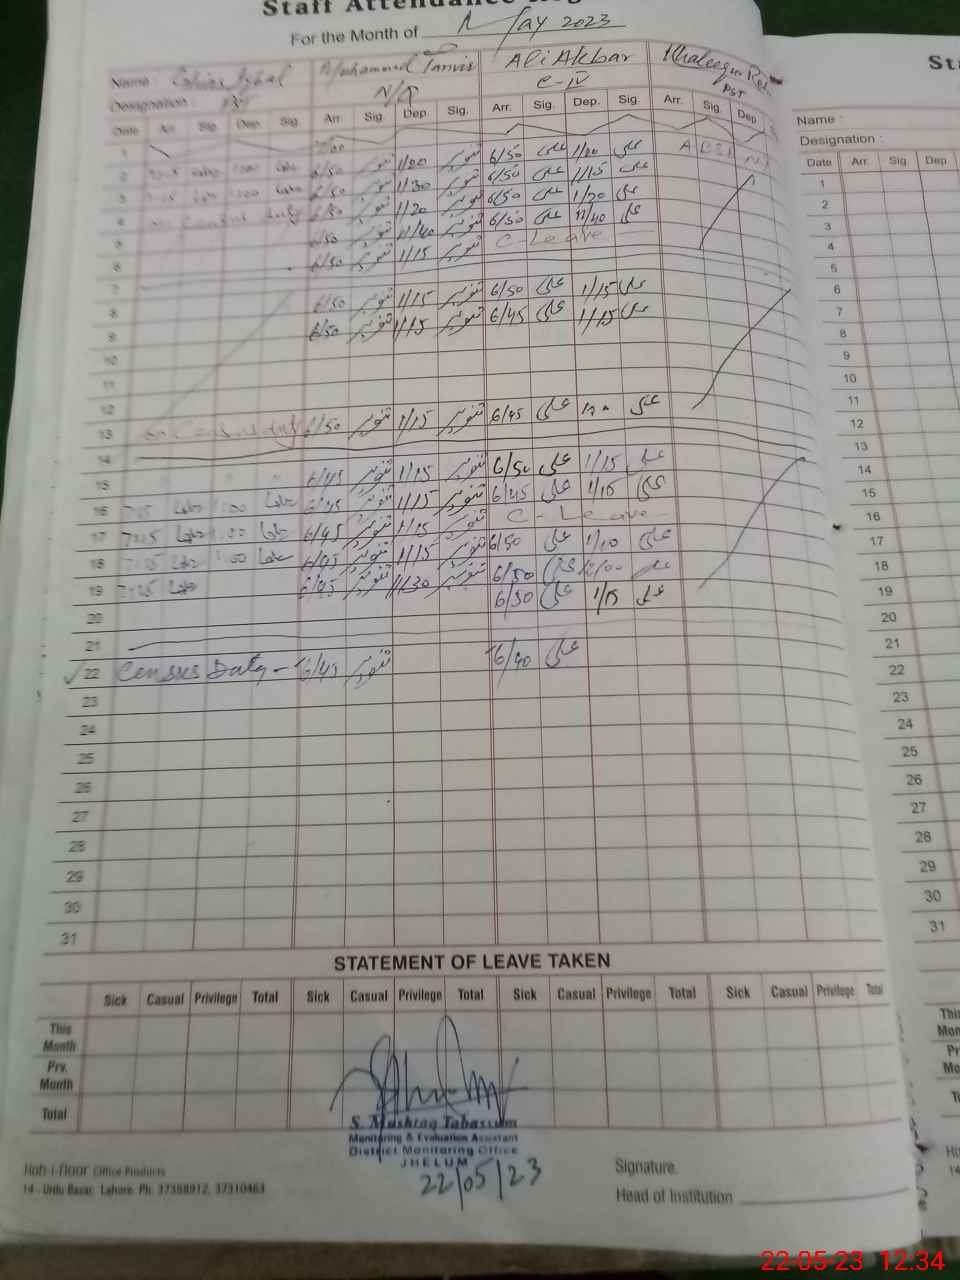 Staff Attendance Reg
For the Month of May 2023
Name : Iqbal Muhammad Tanvir Ali Akbar Khaleequr Reh
Designation : PST N/Q C-IV PST
Date Arr. Sig. Dep. Sig. Arr. Sig. Dep. Sig. Arr. Sig. Dep. Sig. Arr. Sig. Dep. S
1
2 6/50 تنویر 1/00 تنویر 6/50 علی 1/00 علی ABSENT
3 6/50 تنویر 1/30 تنویر 6/50 علی 1/15 علی
4 on Census duty 6/50 تنویر 1/20 تنویر 6/50 علی 1/20 علی
5 6/50 تنویر 11/40 تنویر 6/50 علی 12/40 علی
6 6/50 تنویر 1/15 تنویر C-Leave
7
8 6/50 تنویر 1/15 تنویر 6/50 علی 1/15 علی
9 6/50 تنویر 1/15 تنویر 6/45 علی 1/15 علی
10
11
12
13 on Census duty 6/50 تنویر 1/15 تنویر 6/45 علی علی
14
15 6/45 تنویر 1/15 تنویر 6/50 علی 1/15 علی
16 7:05 1:00 6/45 تنویر 1/15 تنویر 6/45 علی 1/15 علی
17 7:05 1:00 6/45 تنویر 1/15 تنویر C-Leave
18 7:05 1:00 6/45 تنویر 1/15 تنویر 6/50 علی 1/10 علی
19 7:05 6/45 تنویر 11/30 تنویر 6/50 علی 12/00 علی
20 6/50 علی 1/15 علی
21
22 Census Duty - 6/45 تنویر 6/40 علی
23
24
25
26
27
28
29
30
31
STATEMENT OF LEAVE TAKEN
Sick Casual Privilege Total Sick Casual Privilege Total Sick Casual Privilege Total Sick Casual Privilege Total
This Month
Prv. Month
Total
S. Mushtaq Tabassum
Monitoring & Evaluation Assistant
District Monitoring Office
JHELUM
22/05/23
Hob-i-floor Office Products
14 - Urdu Bazar, Lahore. Ph: 37358912, 37310463
Signature
Head of Institution
Sta
Name :
Designation :
Date Arr. Sig Dep
1
2
3
4
5
6
7
8
9
10
11
12
13
14
15
16
17
18
19
20
21
22
23
24
25
26
27
28
29
30
31
22-05-23 12:34